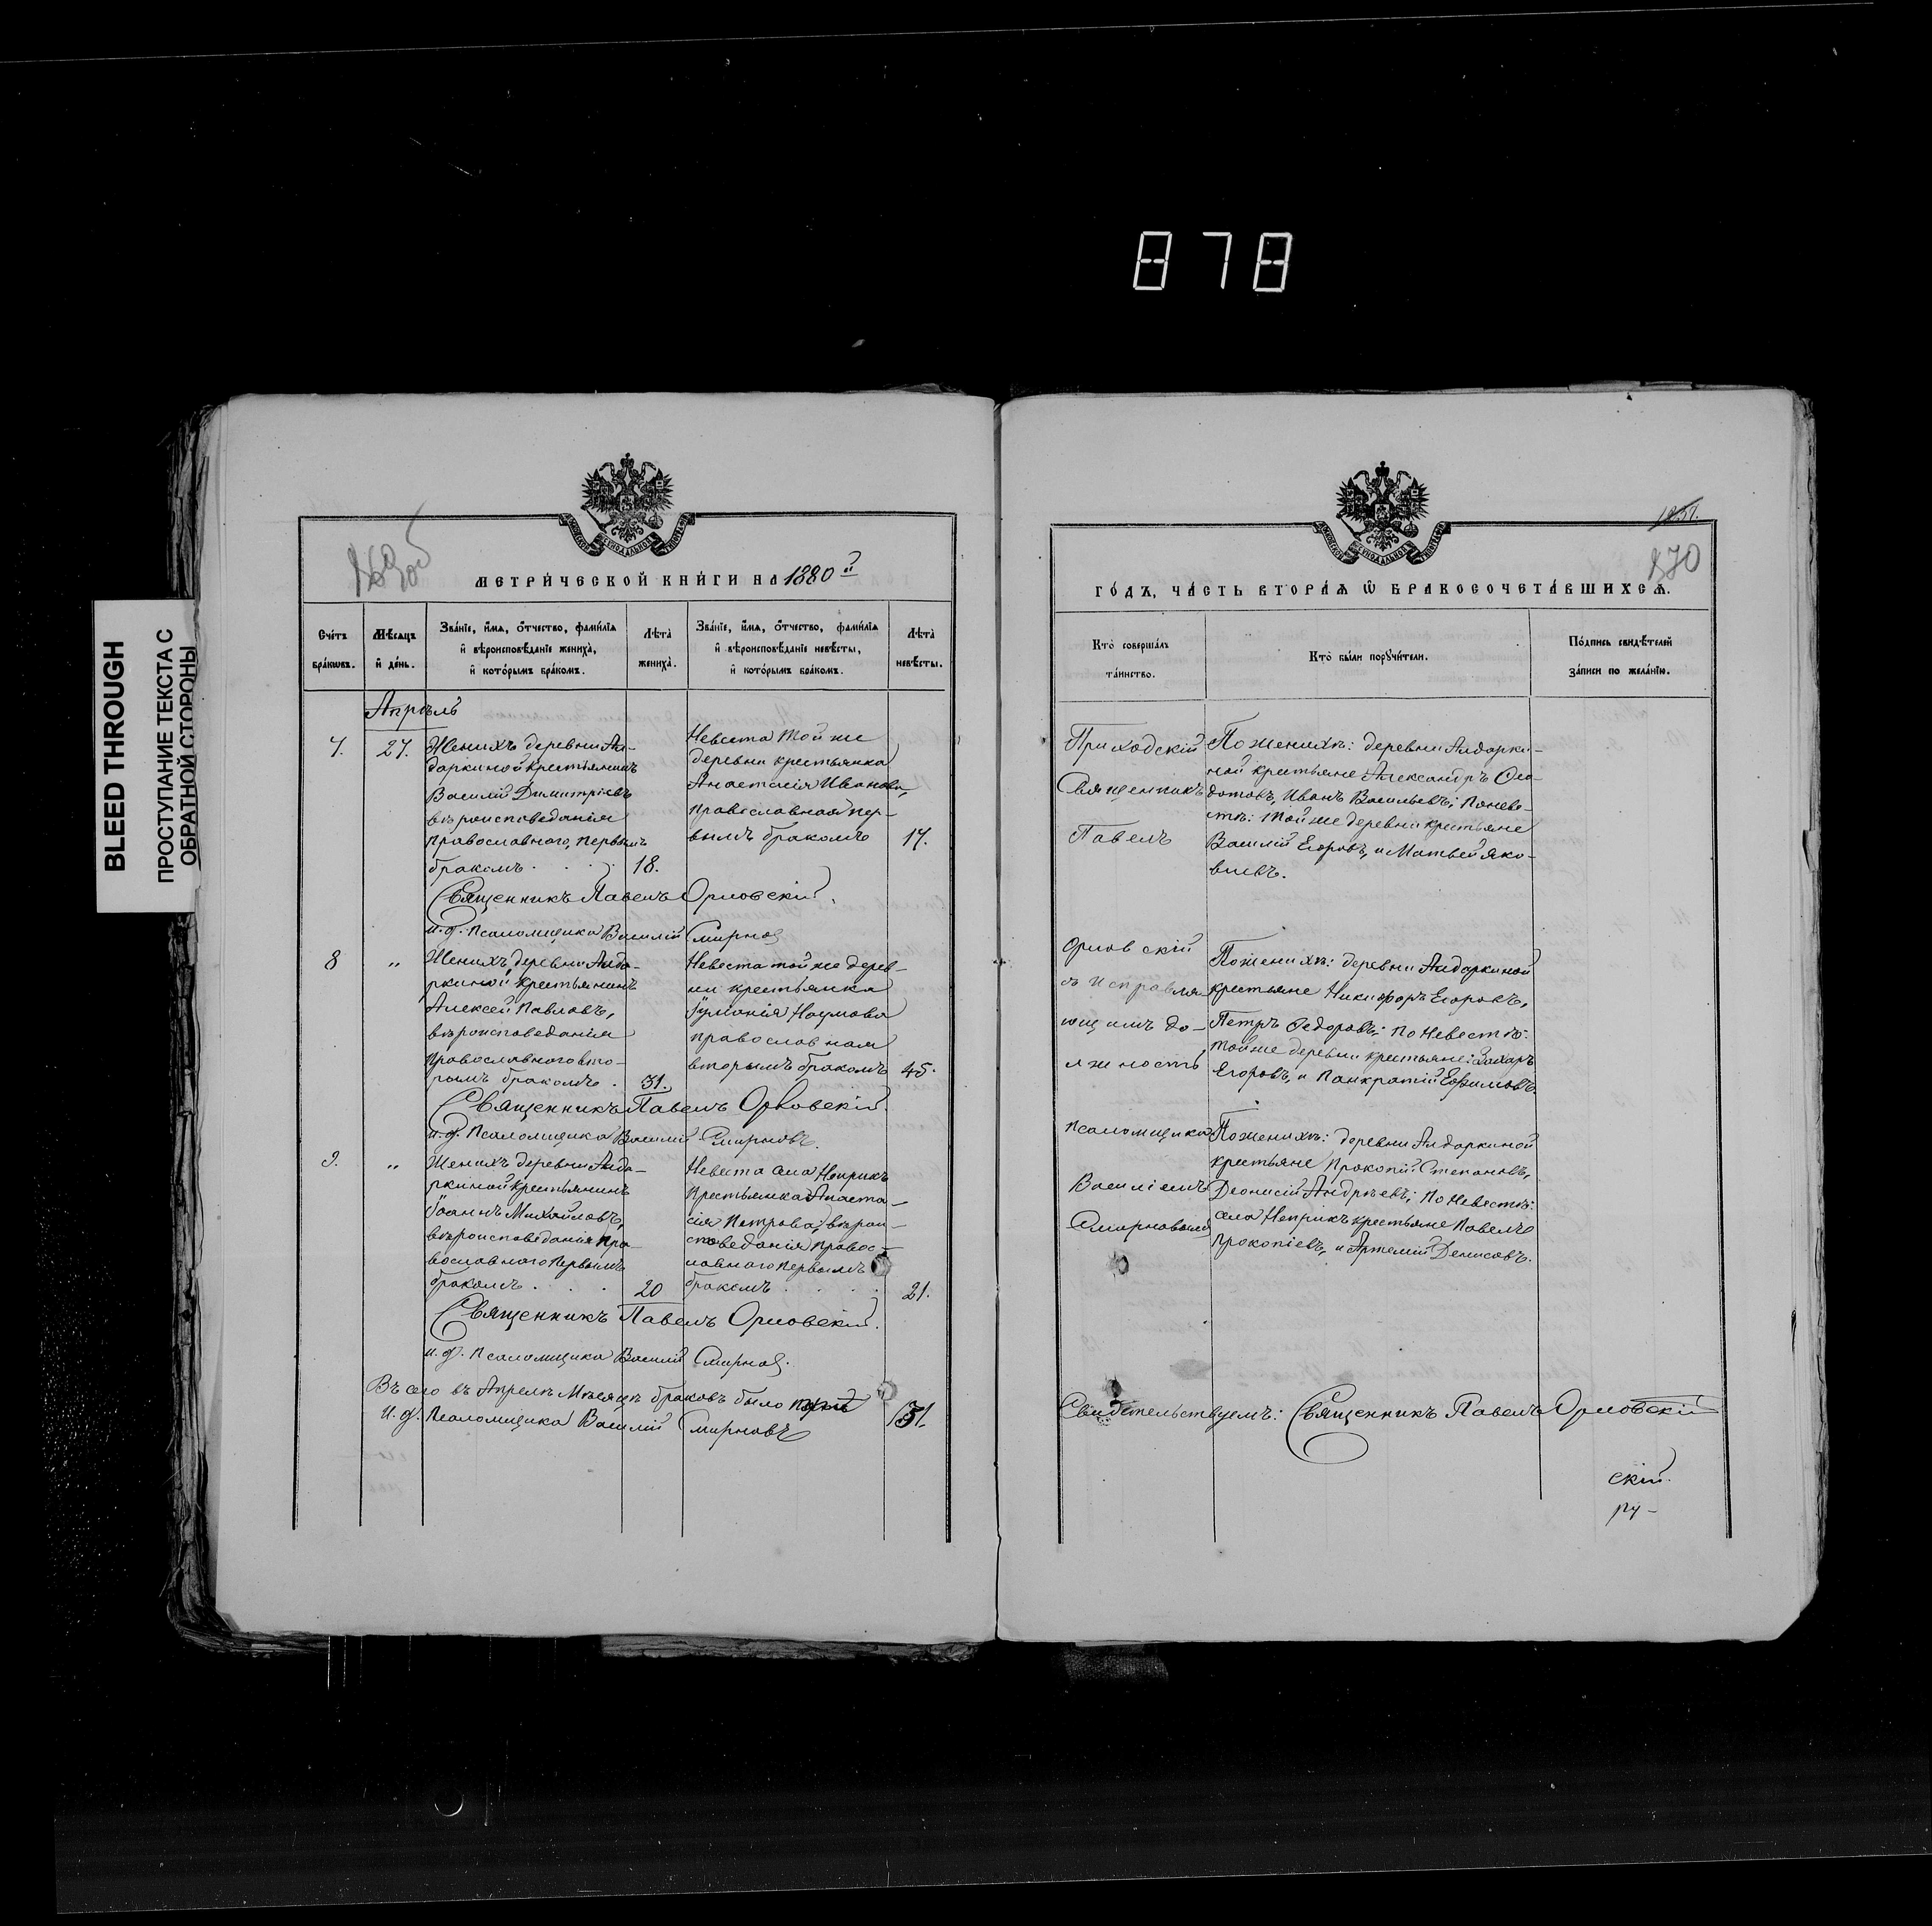 878
BLEED THROUGH
ПРОСТУПАНИЕ ТЕКСТА С
ОБРАТНОЙ СТОРОНЫ
МЕТРИЧЕСКОЙ КНИГИ НА 1880й
Счетъ браковъ.
Мѣсяцъ и день.
Званіе, имя, отчество, фамилія и вѣроисповѣданіе жениха, и которымъ бракомъ.
Лѣта жениха.
Званіе, имя, отчество, фамилія и вѣроисповѣданіе невѣсты, и которымъ бракомъ.
Лѣта невѣсты.
Апрѣль
7. 27.
Женихъ деревни Ай-
даркиной крестьянинъ
Василій Димитріевъ
вѣроисповеданія
православнаго, первымъ
бракомъ 18.
Невеста той же
деревни крестьянка
Анастасія Иванова,
православная пер-
вымъ бракомъ 17.
Священникъ Павелъ Орловскій.
и. д. псаломщика Василій Смирновъ
8 "
Женихъ деревни Айда-
ркиной крестьянинъ
Алексей Павловъ,
вѣроисповедания
православнаго вто-
рымъ бракомъ. 31.
Невеста той же дерев-
ни крестьянка
Іуліанія Наумова
православная
вторымъ бракомъ 45.
Священникъ Павелъ Орловскій.
и. д. Псаломщика Василій Смирновъ.
9. "
Женихъ деревни Айда-
ркиной крестьянинъ
Іоаннъ Михайловъ,
вѣроисповеданія пра-
вославнаго первымъ
бракомъ 20
Невеста села Неприкъ
крестьянка Анаста-
сія Петрова, вѣрои-
споведанія правос-
лавнаго первымъ
бракомъ 21.
Священникъ Павелъ Орловскій.
и. д. псаломщика Василій Смирновъ.
Всего въ Апрелѣ Мѣсяцѣ браковъ было
И. д. Псаломщика Василій Смирновъ
870
ГОДЪ, ЧАСТЬ ВТОРАЯ Ѿ БРАКОСОЧЕТАВШИХСЯ.
Кто совершалъ таинство.
Кто были поручители.
Подпись свидѣтелей записи по желанію.
Приходскій
Священникъ
Павелъ
Орловскій
съ исправля
ющимъ до-
лжность
псаломщика
Василіемъ
Смирновымъ
По женихѣ: деревни Айдарки-
ной крестьяне Александръ Ѳео-
дотовъ, Иванъ Васильевъ; по неве-
стѣ: той же деревни крестьяне
Василій Егоровъ, и Матвей Яко-
влевъ.
По женихѣ: деревни Айдаркиной
крестьяне Никифоръ Егоровъ,
Петръ Ѳедоровъ; по невестѣ:
той же деревни крестьяне: Захаръ
Егоровъ, и Панкратій Ефимовъ.
По женихѣ: деревни Айдаркиной
крестьяне Прокопій Степановъ,
Діонисій Андрѣевъ; по невестѣ:
села Неприкъ крестьяне Павелъ
Прокопіевъ, и Артемій Денисовъ.
Свидѣтельствуемъ: Священникъ Павелъ Орловскій
скій.
ру-